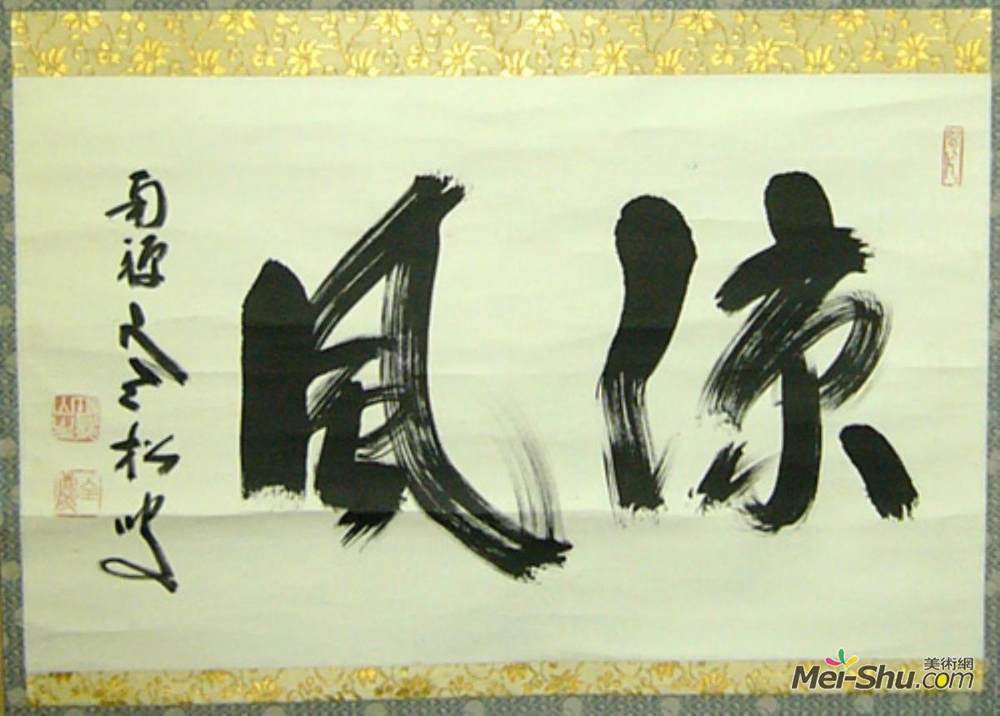 涼風
南禅寒松
美術網
Mei-Shu.com